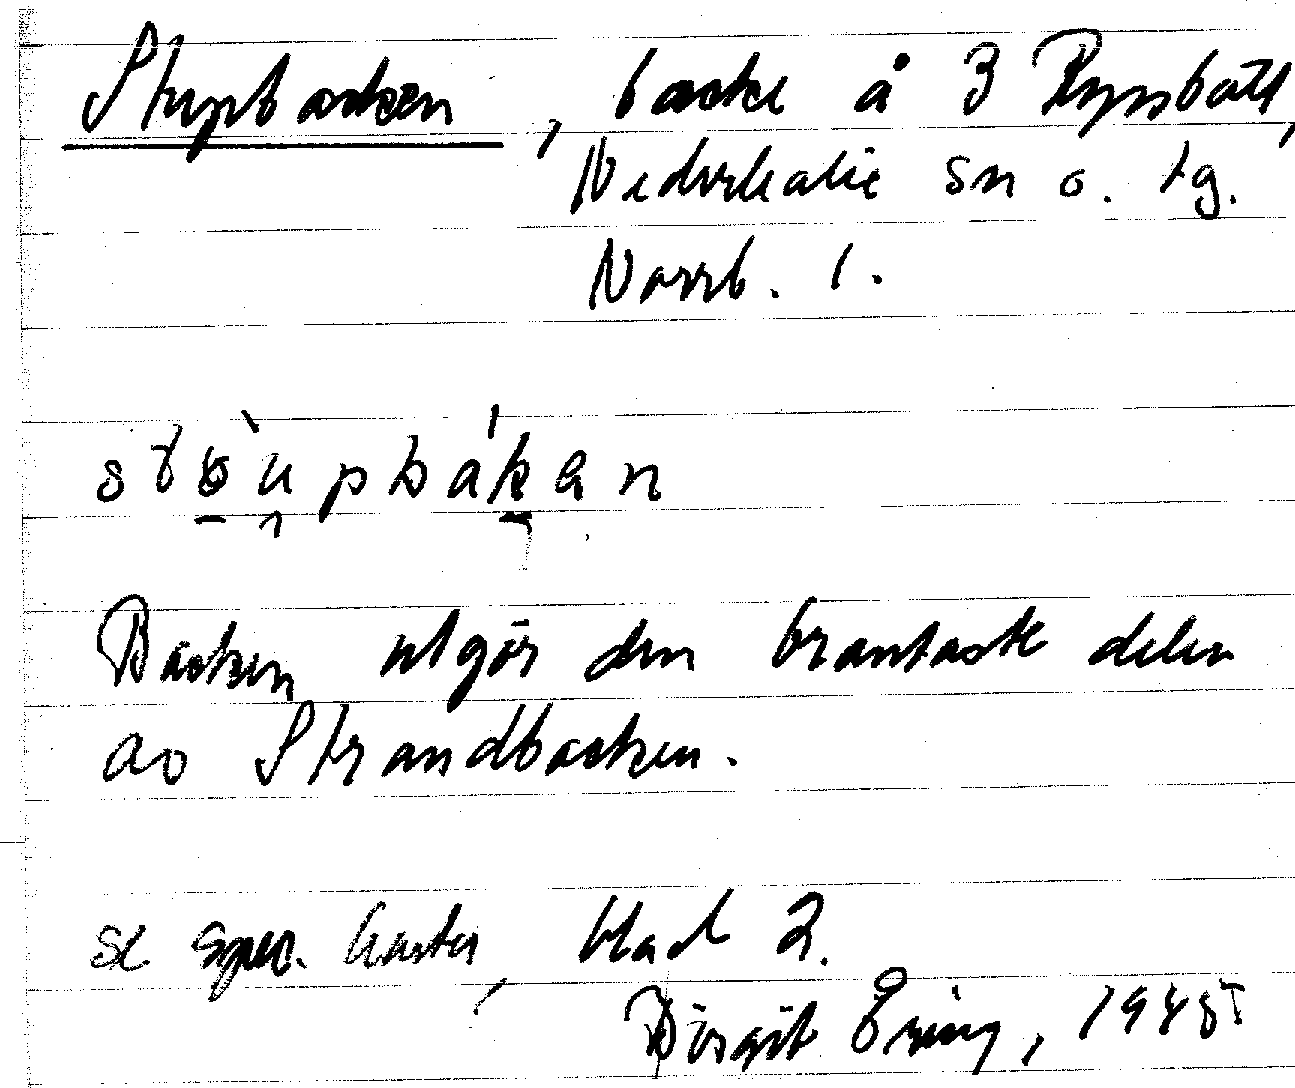 Stupbacken, backe å 3 Ryssbält,
Nederkalix sn o. tg.
Norrb. l.
Backen utgör den brantaste delen
av Strandbacken.
se spec. karta, blad 2.
Birgit 1945